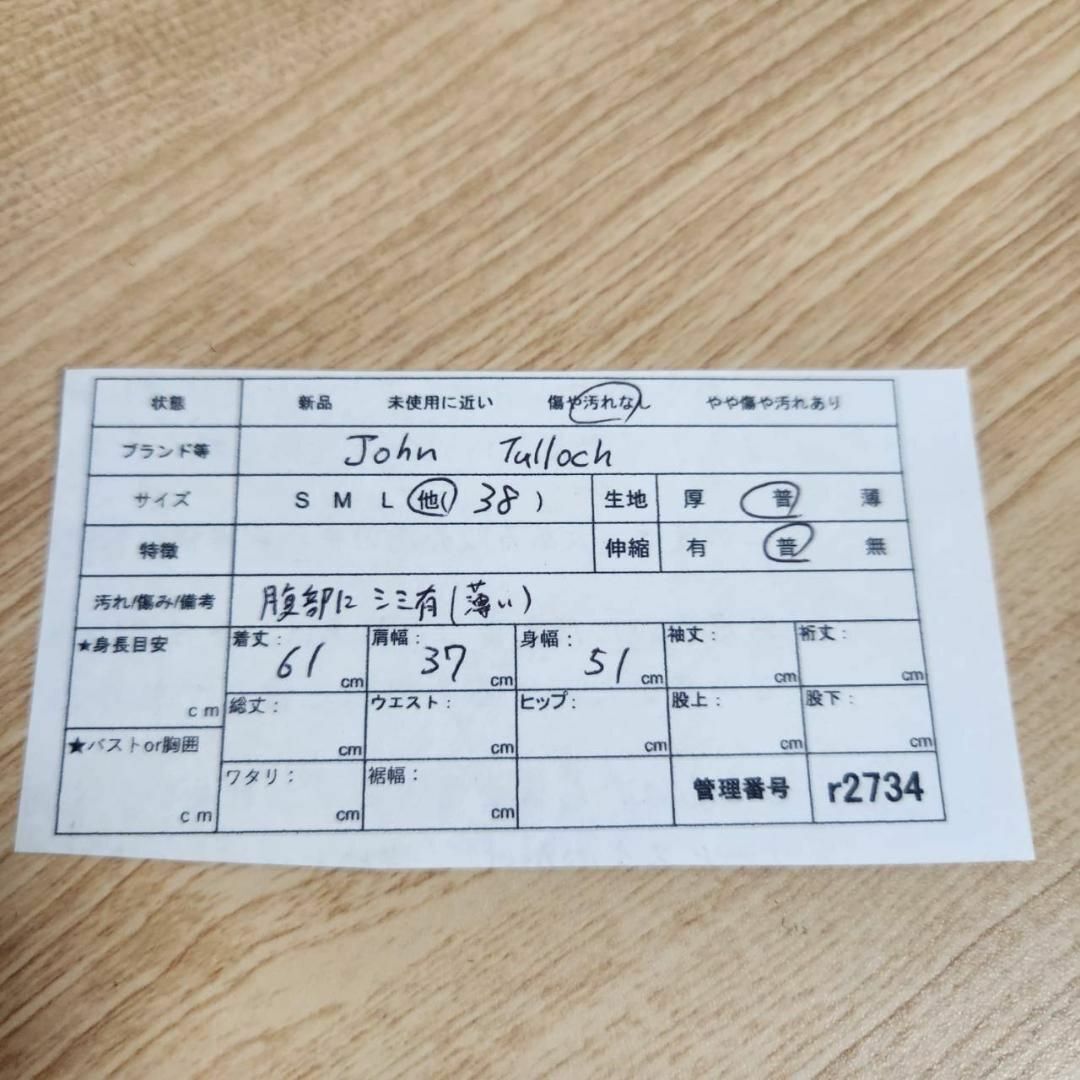 状態 新品 未使用に近い 傷や汚れなし やや傷や汚れあり
ブランド等 John Tulloch
サイズ S M L 他( 38 ) 生地 厚 普 薄
特徴 伸縮 有 普 無
汚れ/傷み/備考 腹部に シミ有(薄い)
★身長目安 cm 着丈: 61 cm 肩幅: 37 cm 身幅: 51 cm 袖丈: cm 裄丈: cm
総丈: cm ウエスト: cm ヒップ: cm 股上: cm 股下: cm
★バストor胸囲 cm ワタリ: cm 裾幅: cm 管理番号 r2734